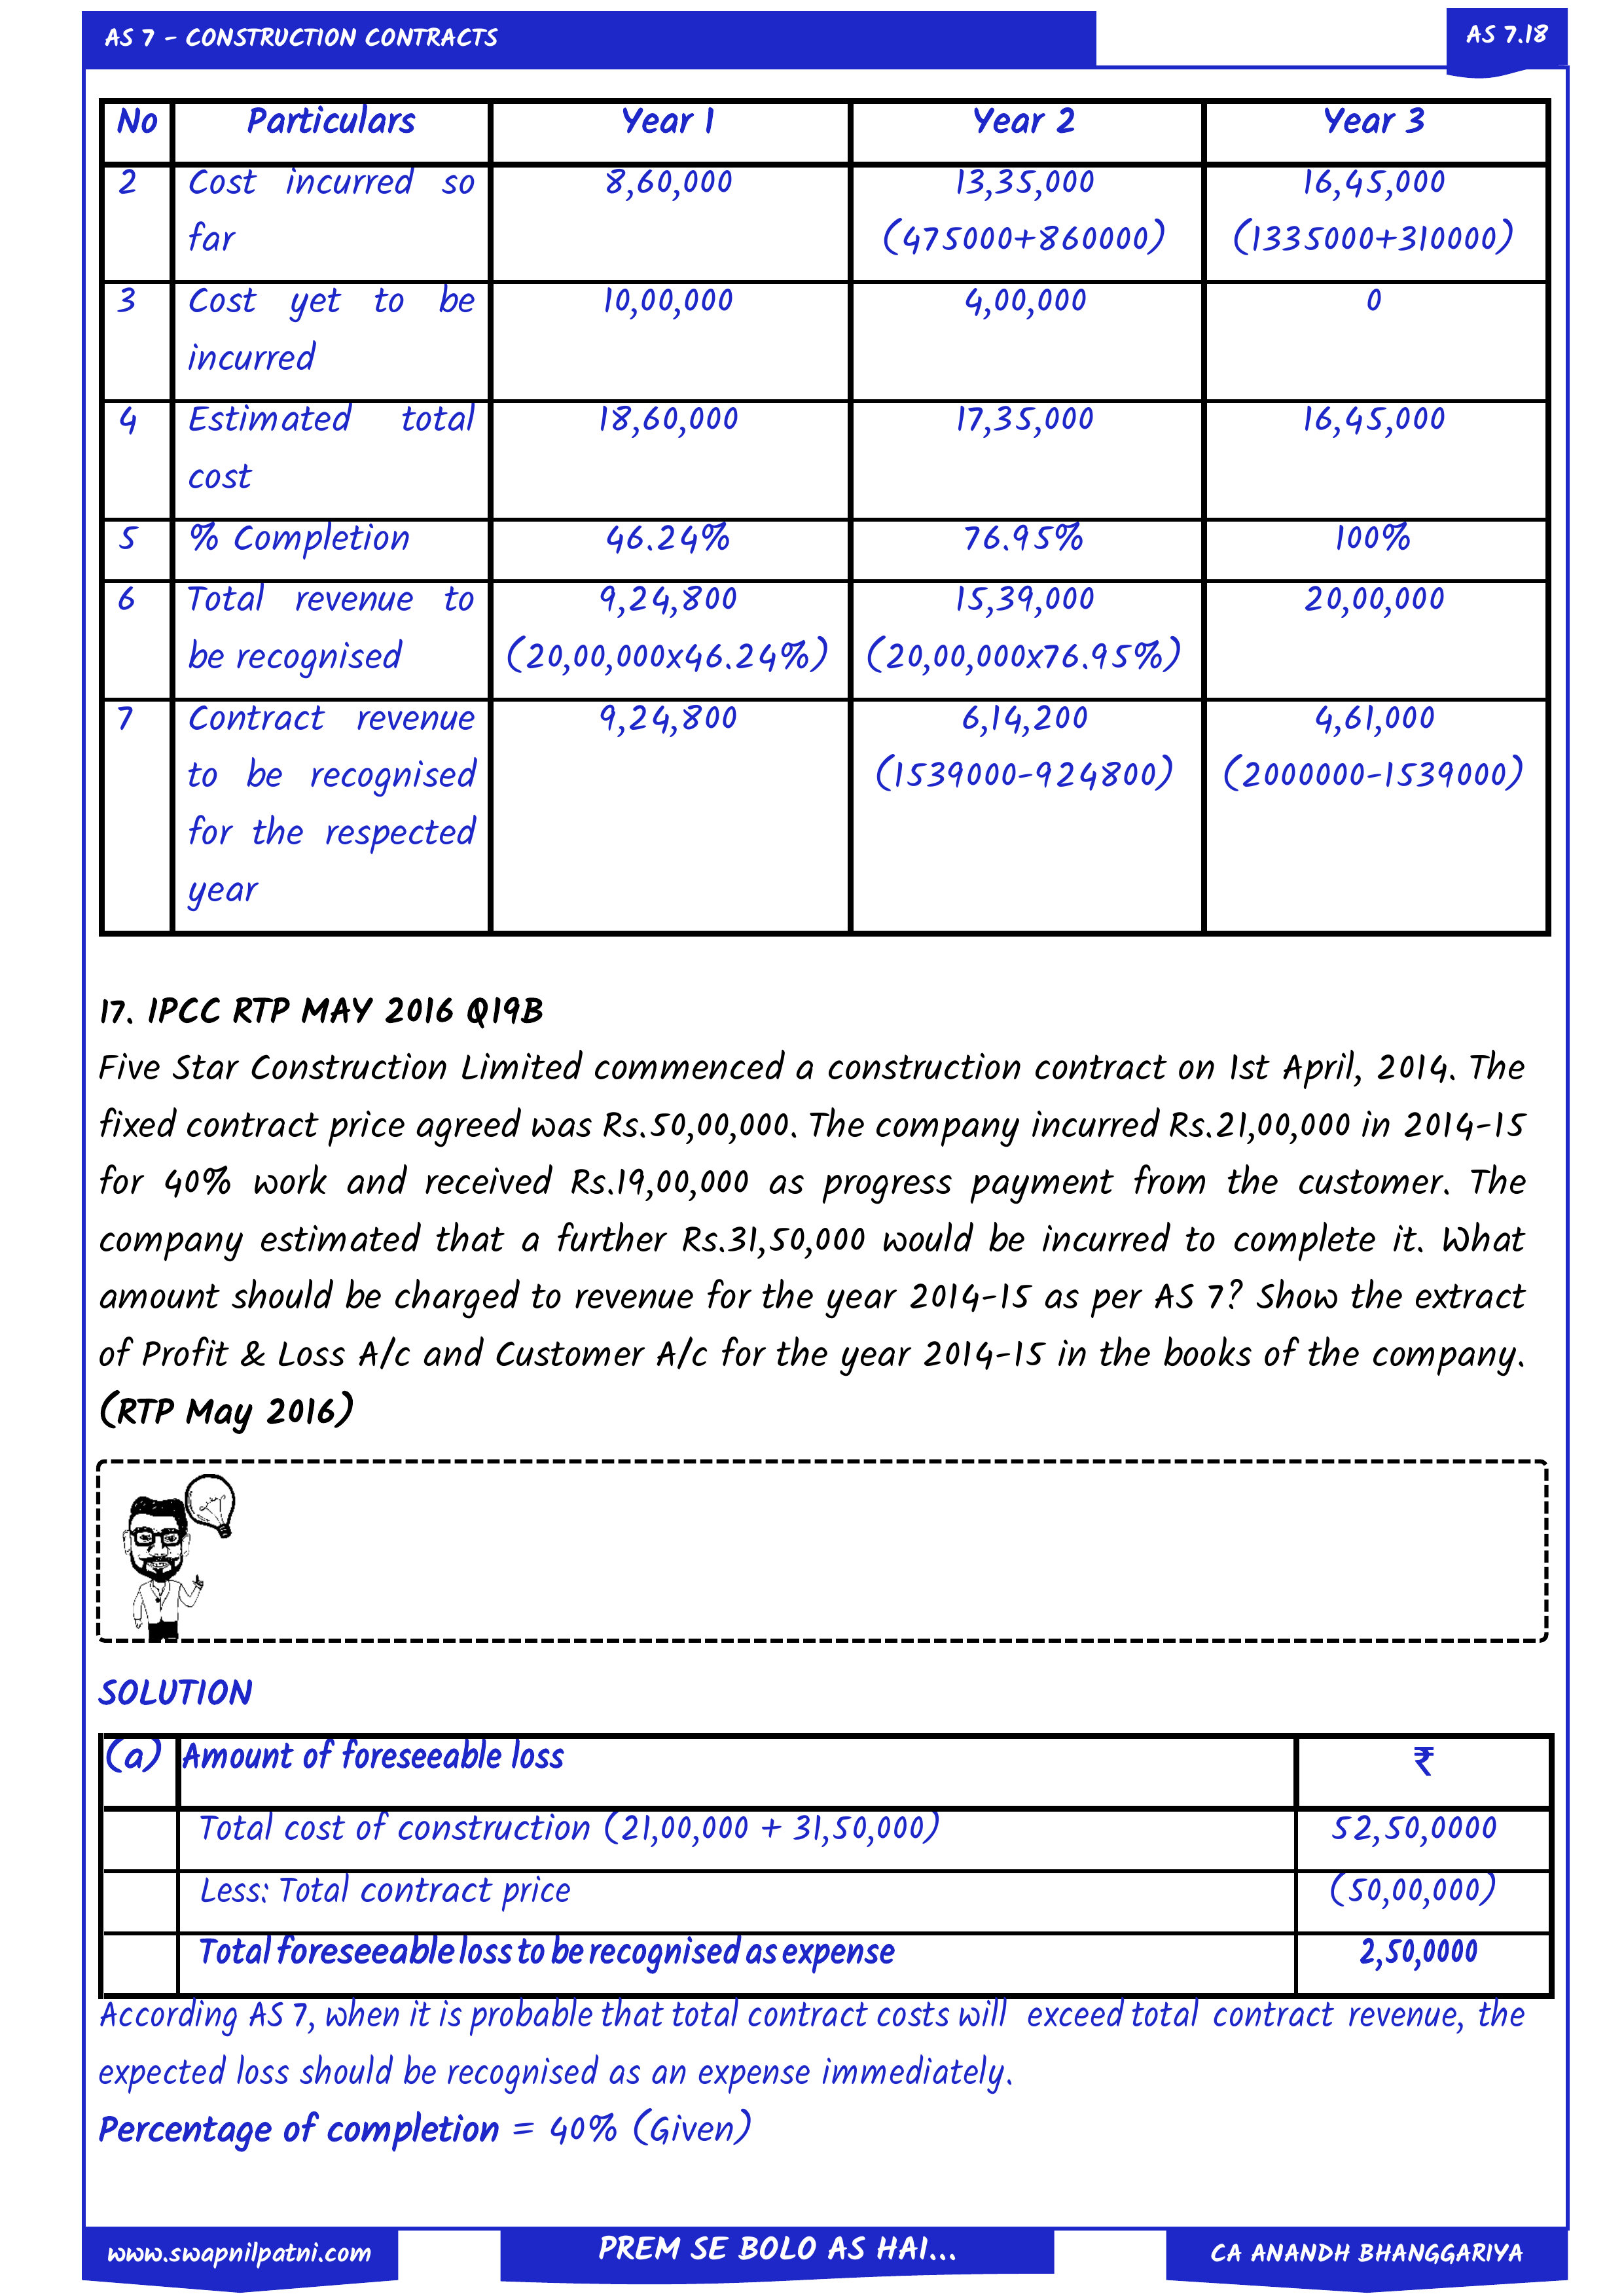 AS 7 - CONSTRUCTION CONTRACTS
AS 7.18
No Particulars Year 1 Year 2 Year 3
2 Cost incurred so far 8,60,000 13,35,000 (475000+860000) 16,45,000 (1335000+310000)
3 Cost yet to be incurred 10,00,000 4,00,000 0
4 Estimated total cost 18,60,000 17,35,000 16,45,000
5 % Completion 46.24% 76.95% 100%
6 Total revenue to be recognised 9,24,800 (20,00,000x46.24%) 15,39,000 (20,00,000x76.95%) 20,00,000
7 Contract revenue to be recognised for the respected year 9,24,800 6,14,200 (1539000-924800) 4,61,000 (2000000-1539000)
17. IPCC RTP MAY 2016 Q19B
Five Star Construction Limited commenced a construction contract on 1st April, 2014. The
fixed contract price agreed was Rs.50,00,000. The company incurred Rs.21,00,000 in 2014-15
for 40% work and received Rs.19,00,000 as progress payment from the customer. The
company estimated that a further Rs.31,50,000 would be incurred to complete it. What
amount should be charged to revenue for the year 2014-15 as per AS 7? Show the extract
of Profit & Loss A/c and Customer A/c for the year 2014-15 in the books of the company.
(RTP May 2016)
SOLUTION
(a) Amount of foreseeable loss ₹
Total cost of construction (21,00,000 + 31,50,000) 52,50,0000
Less: Total contract price (50,00,000)
Total foreseeable loss to be recognised as expense 2,50,0000
According AS 7, when it is probable that total contract costs will exceed total contract revenue, the
expected loss should be recognised as an expense immediately.
Percentage of completion = 40% (Given)
www.swapnilpatni.com
PREM SE BOLO AS HAI...
CA ANANDH BHANGGARIYA